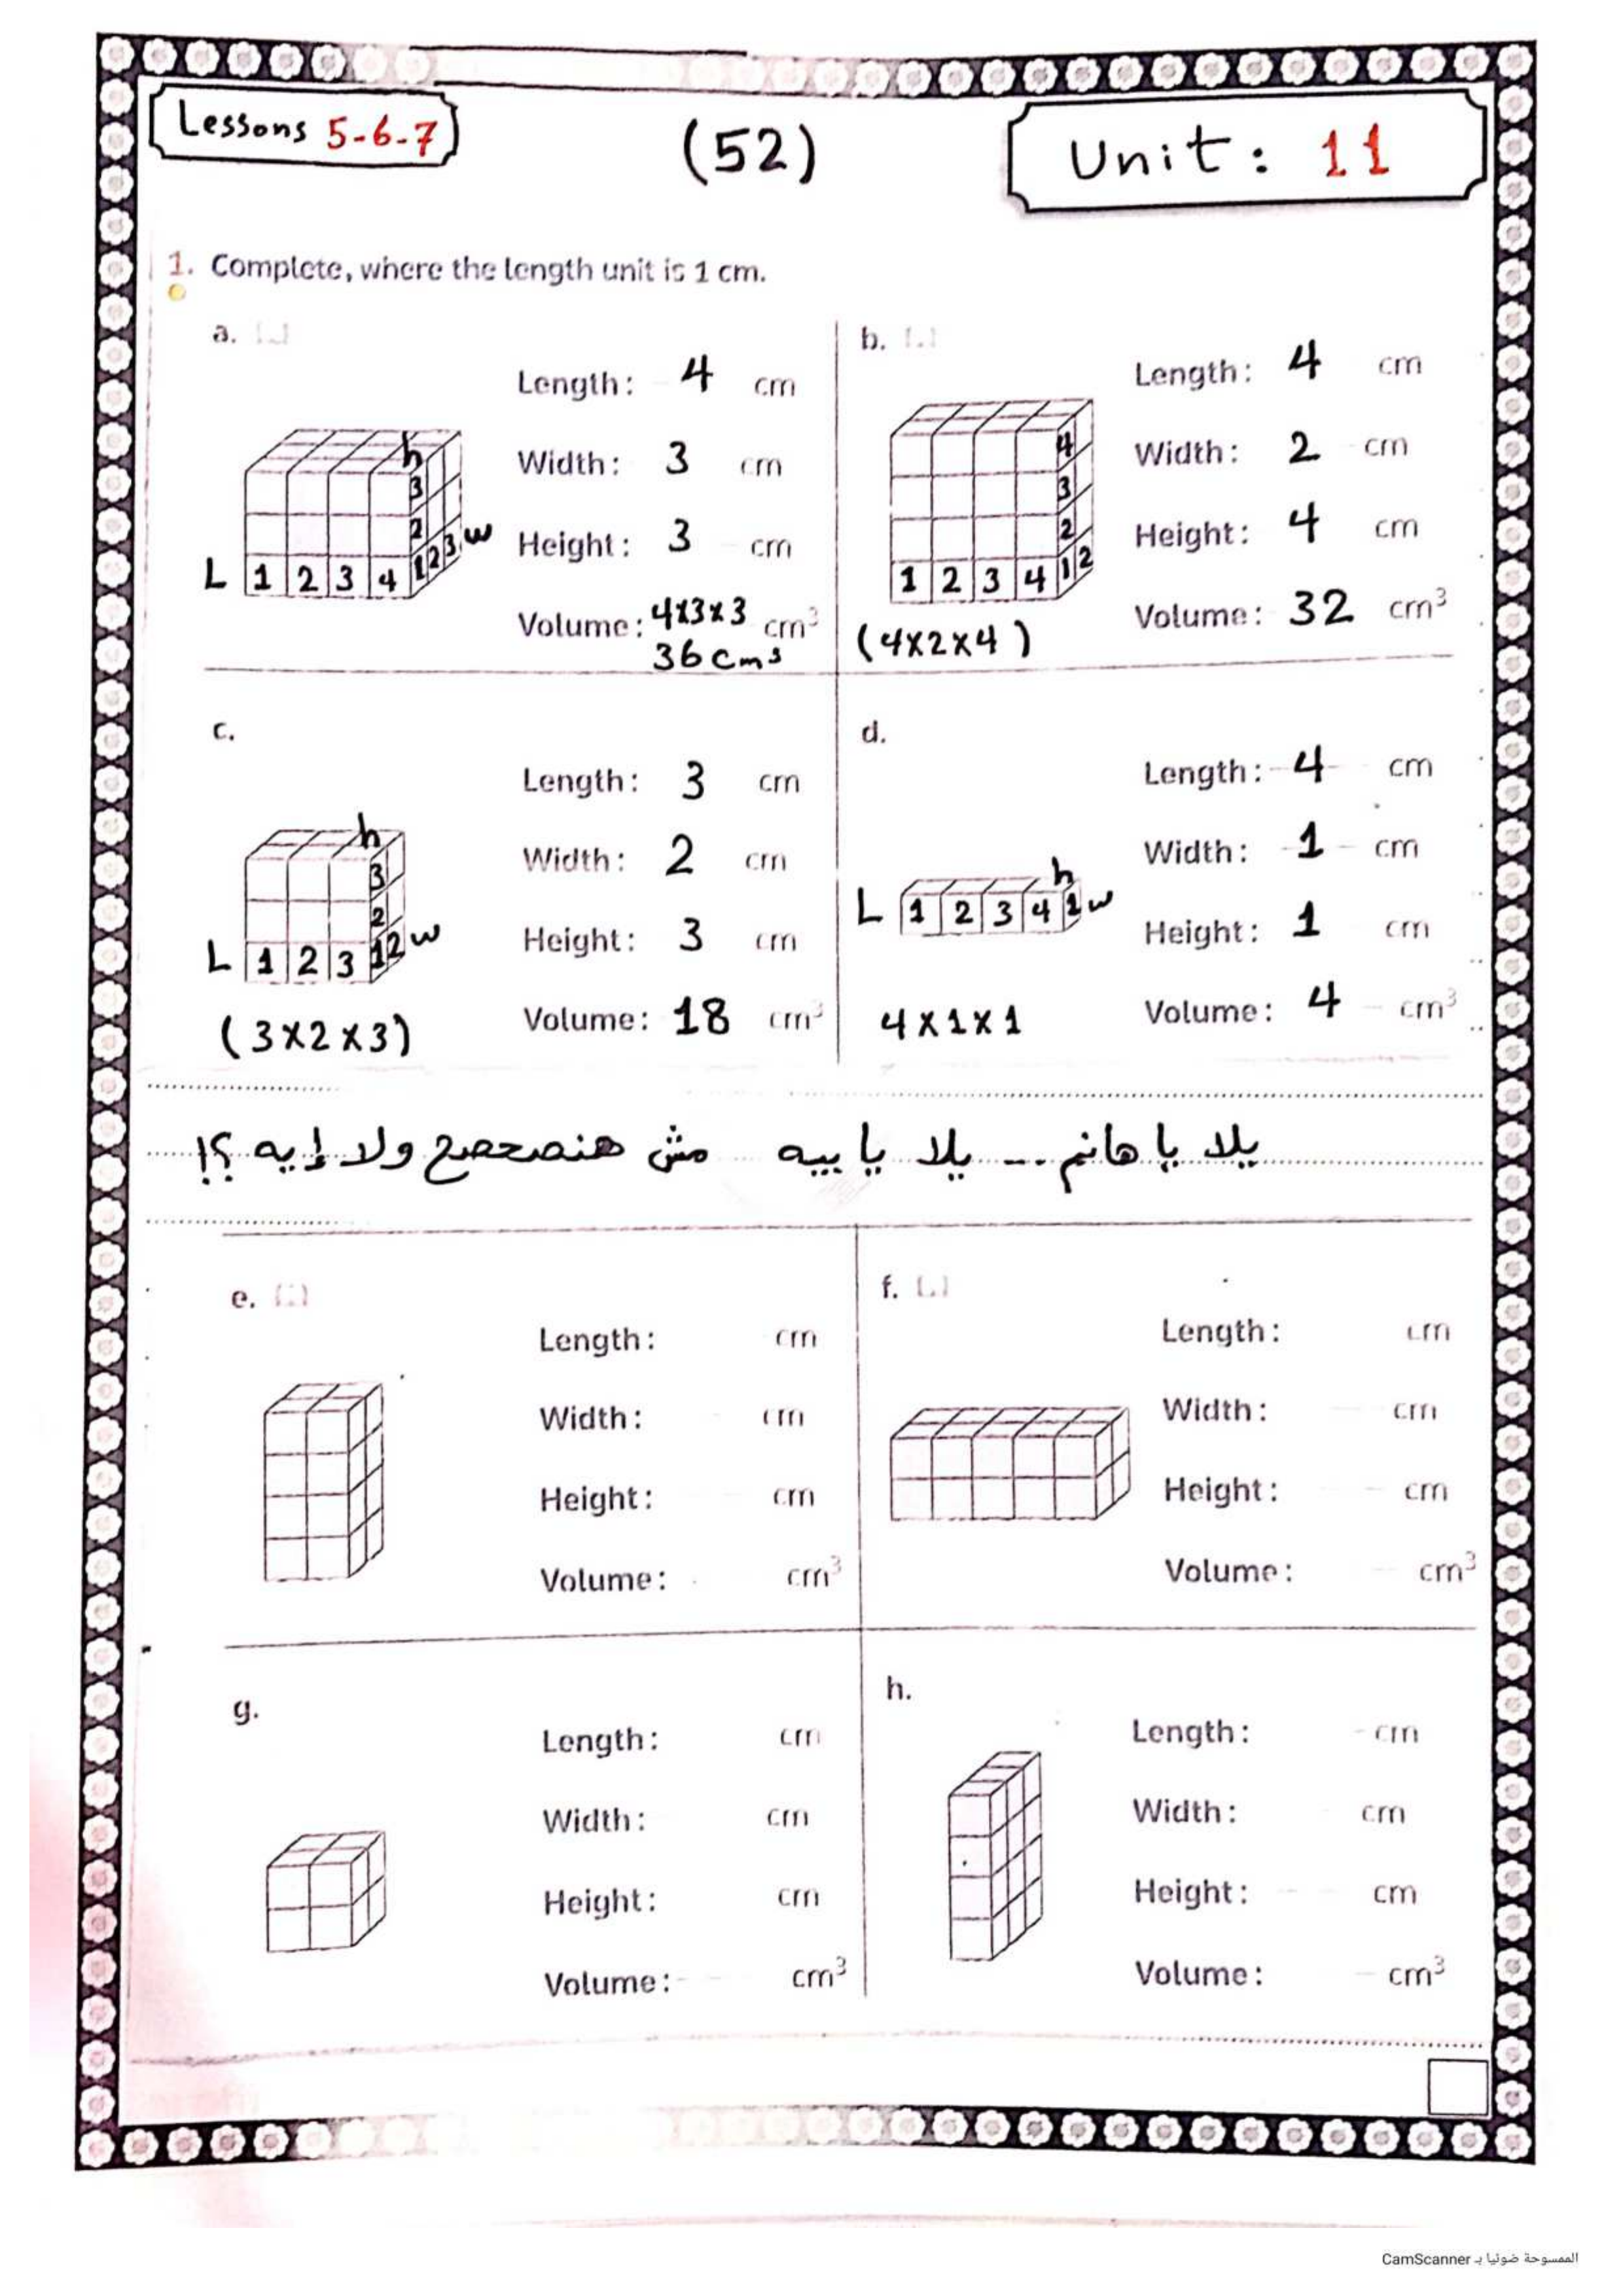 Lessons 5-6-7
(52)
Unit: 11
1. Complete, where the length unit is 1 cm.
a.
Length: 4 cm
Width: 3 cm
Height: 3 cm
Volume: 4x3x3 cm³
36 cm³
h
3
2
1 2 3 w
L 1 2 3 4
b.
Length: 4 cm
Width: 2 cm
Height: 4 cm
Volume: 32 cm³
4
3
2
1 2 3 4 1 2
(4x2x4)
c.
Length: 3 cm
Width: 2 cm
Height: 3 cm
Volume: 18 cm³
h
3
2
L 1 2 3 1 2 w
(3x2x3)
d.
Length: 4 cm
Width: 1 cm
Height: 1 cm
Volume: 4 cm³
h
L 1 2 3 4 1 w
4x1x1
يلا يا هانم -- يلا يا بيه مش هنصحصح ولا إيه ؟!
e.
Length: cm
Width: cm
Height: cm
Volume: cm³
f.
Length: cm
Width: cm
Height: cm
Volume: cm³
g.
Length: cm
Width: cm
Height: cm
Volume: cm³
h.
Length: cm
Width: cm
Height: cm
Volume: cm³
الممسوحة ضوئيا بـ CamScanner